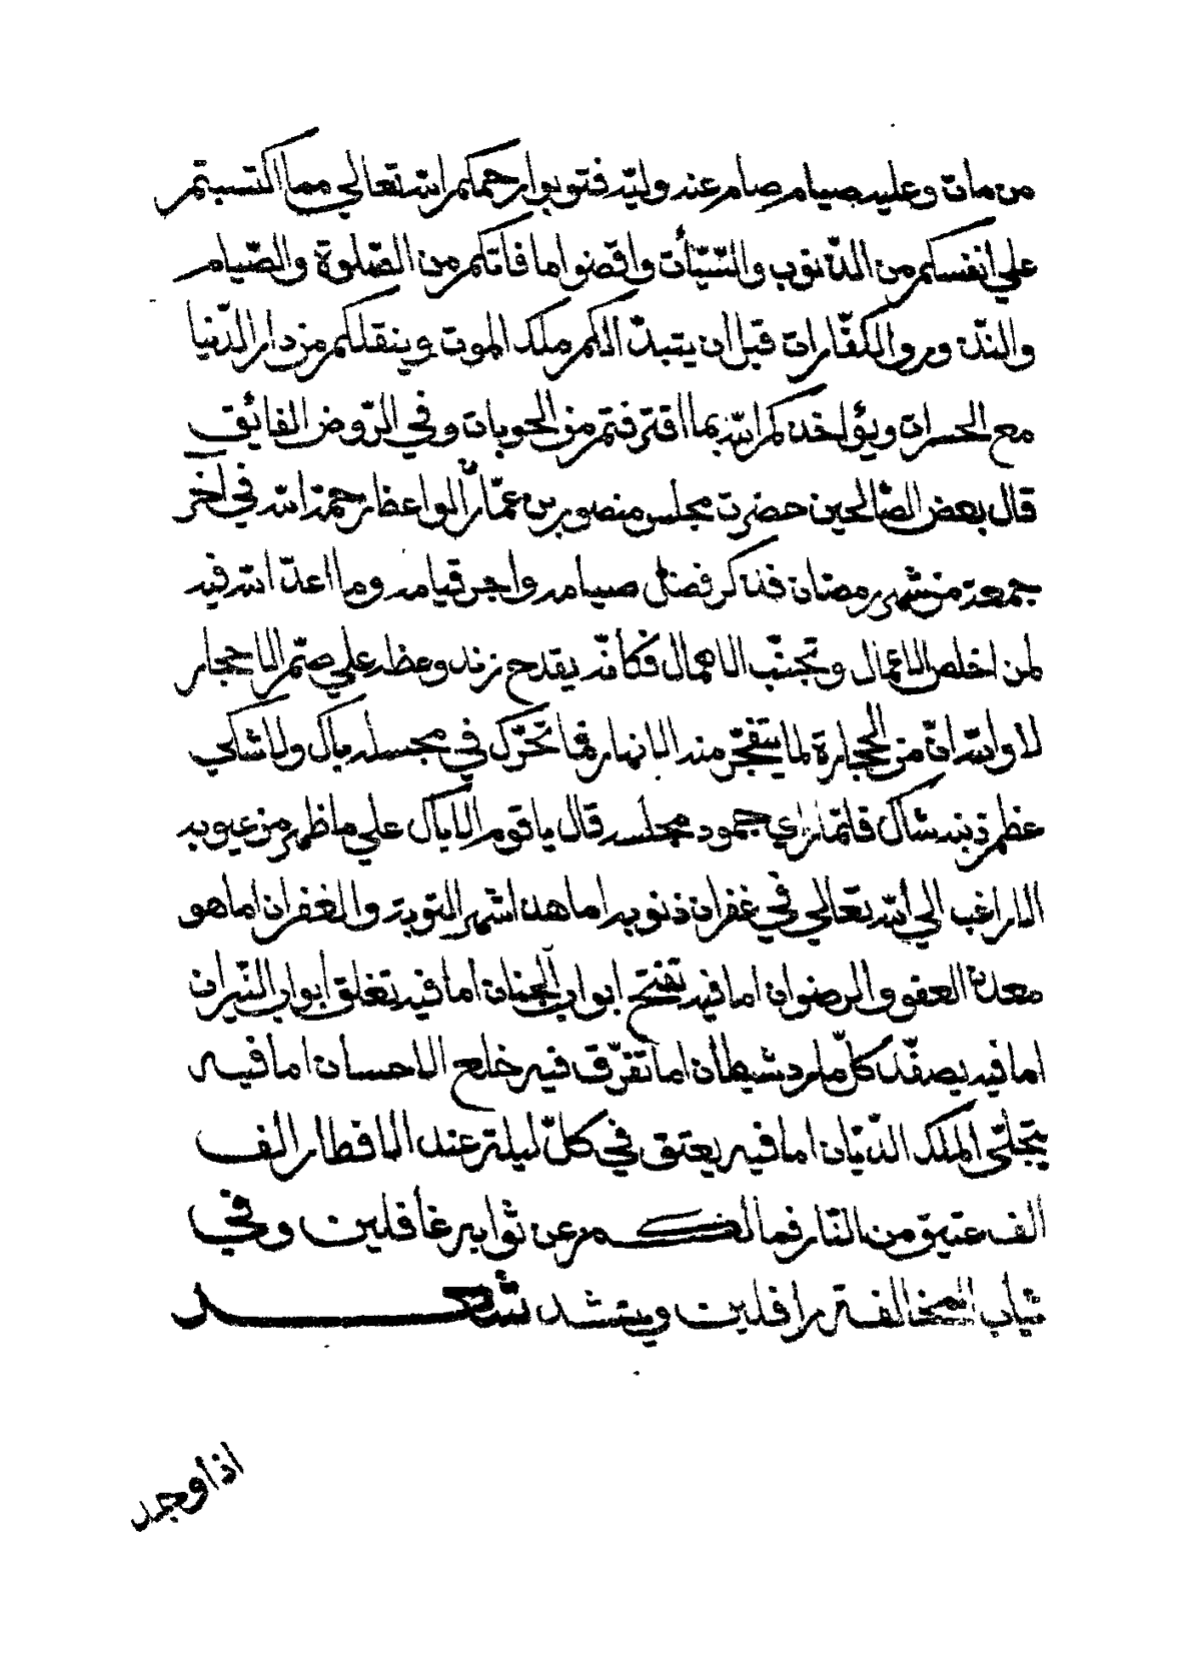 من مات وعليه صيام صام عنه وليّه فتوبوا رحمكم الله تعالي مما اكتسبتم
علي انفسكم من الذّنوب والسّيّأت واقضوا ما فاتكم من الصّلوة والصّيام
والنّذور والكفّارات قبل ان يتبدّا لكم ملك الموت وينقلكم من دار الدّنيا
مع الحسرات ويؤاخذكم الله بما اقترفتم من الحوبات وفي الرّوض الفائق
قال بعض الصّالحين حضرت مجلس منصور بن عمّار الواعظ رحمة الله في اخر
جمعة من شهر رمضان فذكر فضل صيامه واجر قيامه وما اعدّ الله فيه
لمن اخلص الاعمال وتجنّب الاهمال فكأنّه يقدح زند وعظه علي صمّ الاحجار
لا والله انّ من الحجارة لما يتفجّر منه الانهار فما تحرّك في مجسله باك ولا شاكي
عظم ذنبه شاك فلمّا راي جمود مجلسه قال يا قوم الا باك علي ما ظهر من عيوبه
الا راغب الي الله تعالي في غفران ذنوبه اما هذا شهر التوبة والغفران اما هو
معدن العفو والرضوان اما فيه تفتح ابواب الجنان أما فيه تغلق ابواب النّيران
اما فيه يصفّد كلّ مارد شيطان اما تفرّق فيه خلع الاحسان اما فيه
يتجلّى الملك الدّيّان اما فيه يعتق في كلّ ليلة عند الافطار الف
الف عتيق من النّار فما لكم عن ثوابه غافلين وفي
ثياب المخالفة رافلين وينشد شعر
اذا وجد